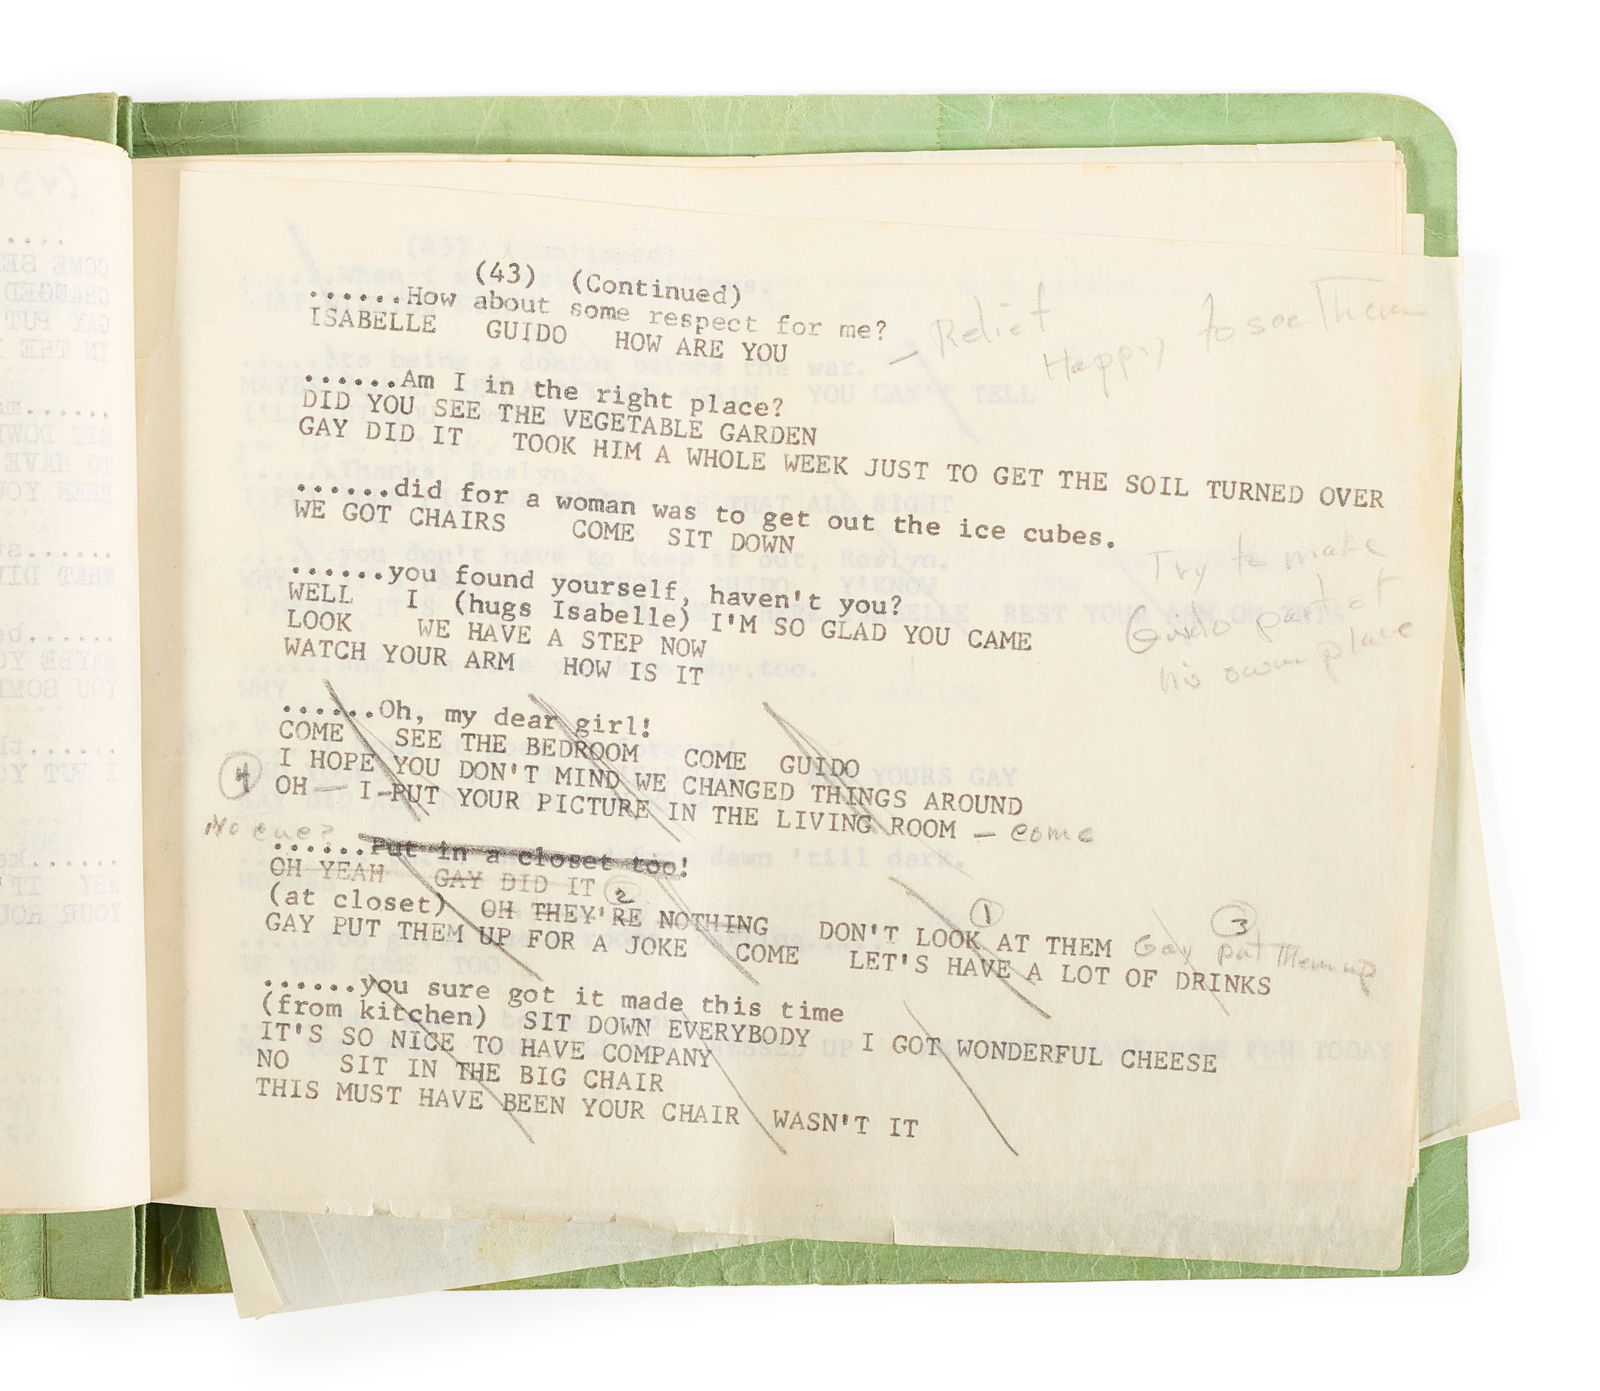 (43) (Continued)
......How about some respect for me?
ISABELLE GUIDO HOW ARE YOU
— Relief
Happy to see Them
......Am I in the right place?
DID YOU SEE THE VEGETABLE GARDEN
GAY DID IT TOOK HIM A WHOLE WEEK JUST TO GET THE SOIL TURNED OVER
......did for a woman was to get out the ice cubes.
WE GOT CHAIRS COME SIT DOWN
Try to make
Guido part of
his own place
......you found yourself, haven't you?
WELL I (hugs Isabelle) I'M SO GLAD YOU CAME
LOOK WE HAVE A STEP NOW
WATCH YOUR ARM HOW IS IT
......Oh, my dear girl!
COME SEE THE BEDROOM COME GUIDO
I HOPE YOU DON'T MIND WE CHANGED THINGS AROUND
4 OH — I PUT YOUR PICTURE IN THE LIVING ROOM — come
No cue?
......Put in a closet too!
OH YEAH GAY DID IT
2 1 3
(at closet) OH THEY'RE NOTHING DON'T LOOK AT THEM Gay put Them up
GAY PUT THEM UP FOR A JOKE COME LET'S HAVE A LOT OF DRINKS
......you sure got it made this time
(from kitchen) SIT DOWN EVERYBODY I GOT WONDERFUL CHEESE
IT'S SO NICE TO HAVE COMPANY
NO SIT IN THE BIG CHAIR
THIS MUST HAVE BEEN YOUR CHAIR WASN'T IT